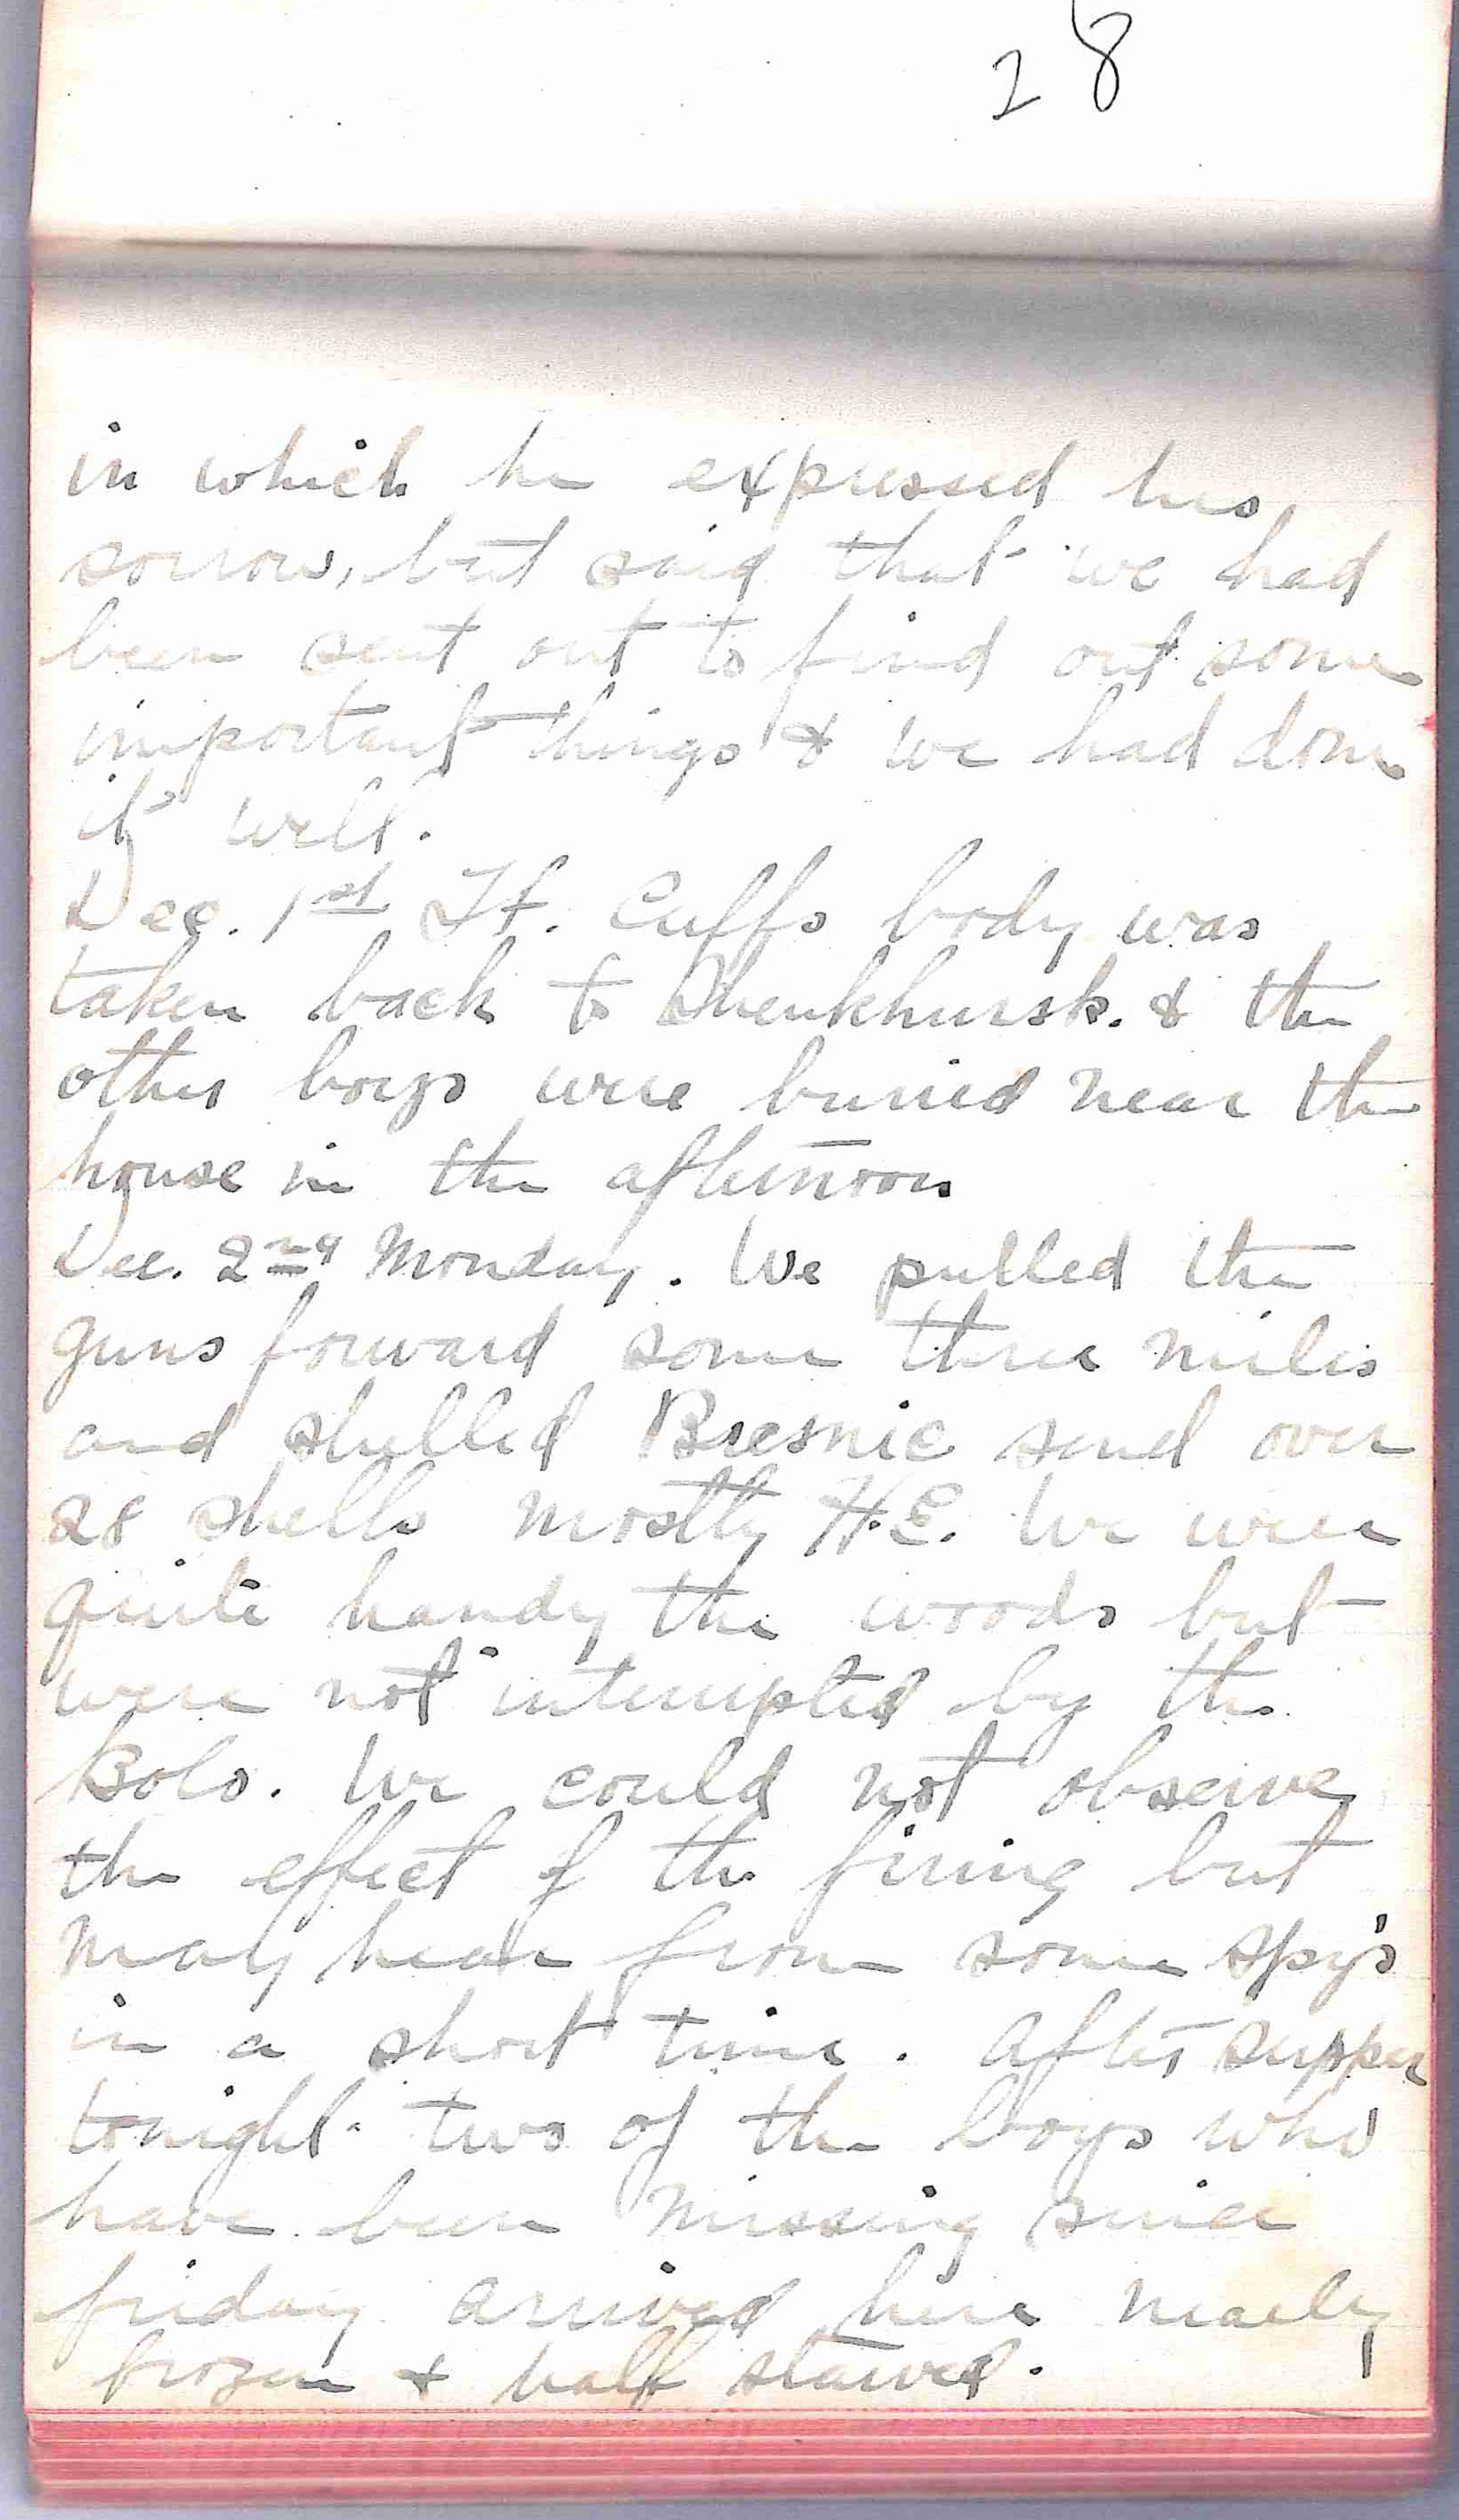 28
in which he expressed his
sorrow, but said that we had
been sent out to find out some
important things & we had done
it well.
Dec. 1st Lt. Cuffs body was
taken back to Shenkhursk. & the
other boys were buried near the
house in the afternoon
Dec. 2nd Monday. We pulled the
guns forward some three miles
and shelled Bresnic send over
28 shells mostly H.E. We were
quite handy the woods but
were not interrupted by the
Bolo. We could not observe
the effect of the firing but
may hear from some spy's
in a short time. After supper
tonight two of the boys who
have been missing since
friday arrived here nearly
frozen & half starved.